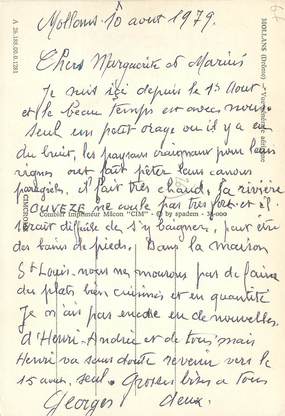 Mollans 10 aout 1979.
Chers Marguerite et Marius
Je suis içi depuis le 1er Aout
et le beau temps est avec nous
seul un petit orage ou il y a eu
du bruit, les paysans craignant pour leurs
vignes ont fait pêter leurs canons
paragrêles, il fait très chaud, la rivière
OUVEZE ne coule pas très fort et il
serait difficile de s'y baigner, peut être
des bains de pieds. Dans la maison
St Louis. nous ne manquons pas de faire
des plats bien cuisinés et en quantité
Je n'ai pas encore eu de nouvelles
d'Henri-Andrée et de tous mais
Henri va sans doute revenir vers le
15 aout, seul. Grosses bises a tous
Georges deux.
67
MOLLANS (Drôme) - Vue générale aérienne
A 26.188.00.0.1281
CIMCROME
Combier Imprimeur Mâcon "CIM" - © by spadem -